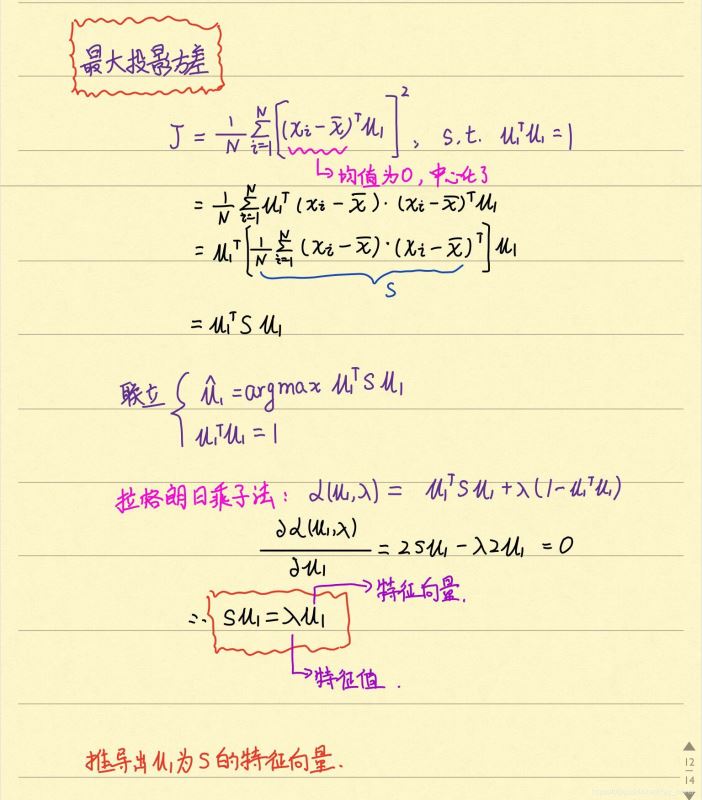 最大投影方差
J = 1/N ∑_{i=1}^{N} [(x_i - x̄)^T u_1]^2, s.t. u_1^T u_1 = 1
均值为0, 中心化了
= 1/N ∑_{i=1}^{N} u_1^T (x_i - x̄)·(x_i - x̄)^T u_1
= u_1^T [1/N ∑_{i=1}^{N} (x_i - x̄)·(x_i - x̄)^T] u_1
S
= u_1^T S u_1
联立 { û_1 = argmax u_1^T S u_1
u_1^T u_1 = 1
拉格朗日乘子法: L(u_1, λ) = u_1^T S u_1 + λ(1 - u_1^T u_1)
∂L(u_1, λ)/∂u_1 = 2Su_1 - λ2u_1 = 0
特征向量.
∴ Su_1 = λu_1
特征值.
推导出u_1为S的特征向量.
12
14